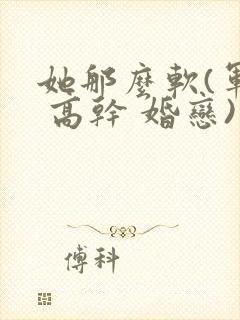 她那麼軟(軍
高幹 婚戀)
傅科